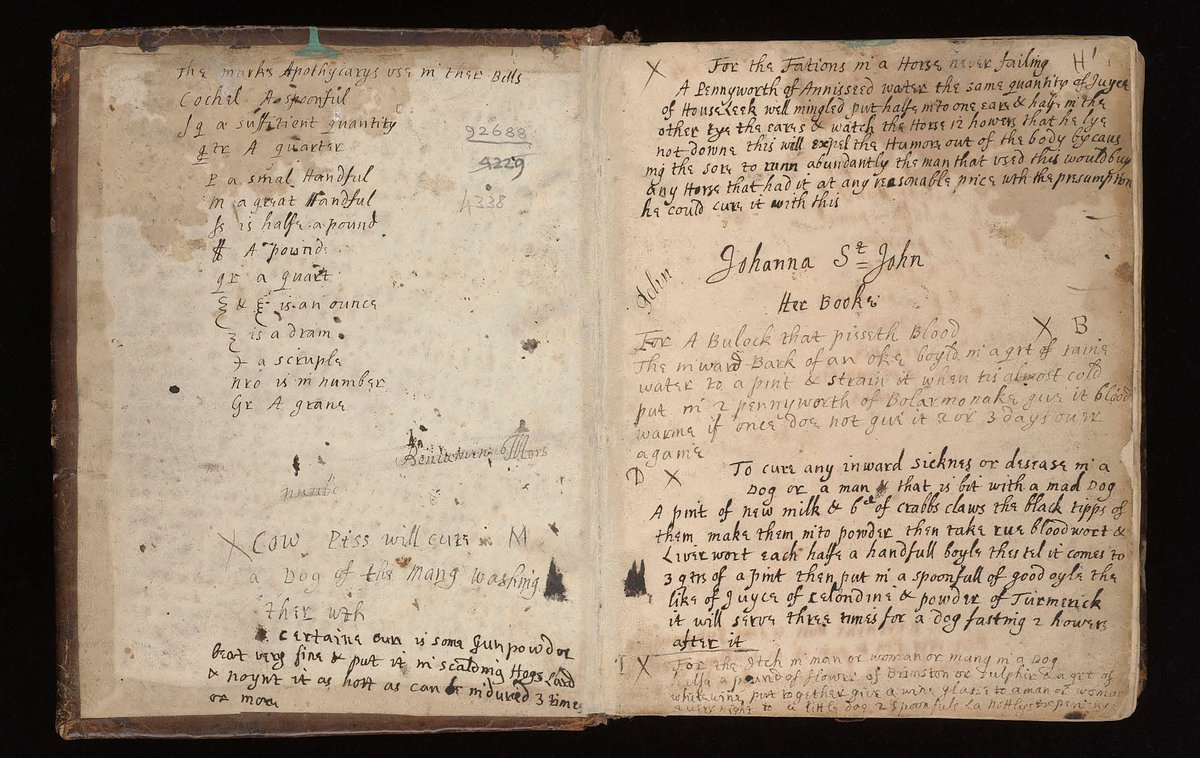 The marks Apothycarys use in ther Bills
Cochel A spoonful
Sq a suffitient quantity
qtr A quarter
P a smal Handful
m a great Handful
fs is halfe a pound
A pound
qr a quart
℥ & ℥ is an ounce
ʒ is a dram
a scruple
nro is in number
Gr A grane
92688
4229
4338
X Cow Piss will cure M
a Dog of the mang washing
ther wth
a certaine cure is some Gunpowder
beat very fine & put it in scalding Hogs Lard
& noynt it as hott as can be indured 3 times
or more
X For the Fations in a Horse never failing H
A Pennyworth of Annisseed water the same quantity of Juyce
of Houseleek well mingled put halfe into one eare & halfe in the
other tye the eares & watch the Horse 12 howers that he lye
not downe this will expel the Humors out of the body by caus
ing the sore to runn abundantly the man that used this would buy
any Horse that had it at any reasonable price wth the presumption
he could cure it with this
Johanna St John
John
Her Booke
For A Bulock that pisseth Blood X B
The inward Bark of an oke boyld in a qrt of raine
water to a pint & strain it when tis almost cold
put in 2 pennyworth of Bolarmonake give it blood
warme if once doe not give it 2 or 3 days over
againe
D X To cure any inward sicknes or desease in a
Dog or a man that is bit with a mad Dog
A pint of new milk & 6d of crabbs claws the black tipps of
them make them into powder then take rue bloodwort &
Liverwort each halfe a handfull boyle thes tel it comes to
3 qtrs of a pint then put in a spoonfull of good oyle the
like of Juyce of celondine & powder of Turmerick
it will serve three times for a dog fasting 2 howers
after it
I X For the Itch in man or woman or mang in a Dog
halfe a pound of flower of Brimston or sulphir & a qrt of
whitewine, put together give a wine glase to a man or woman
to a little dog 2 spoonfuls